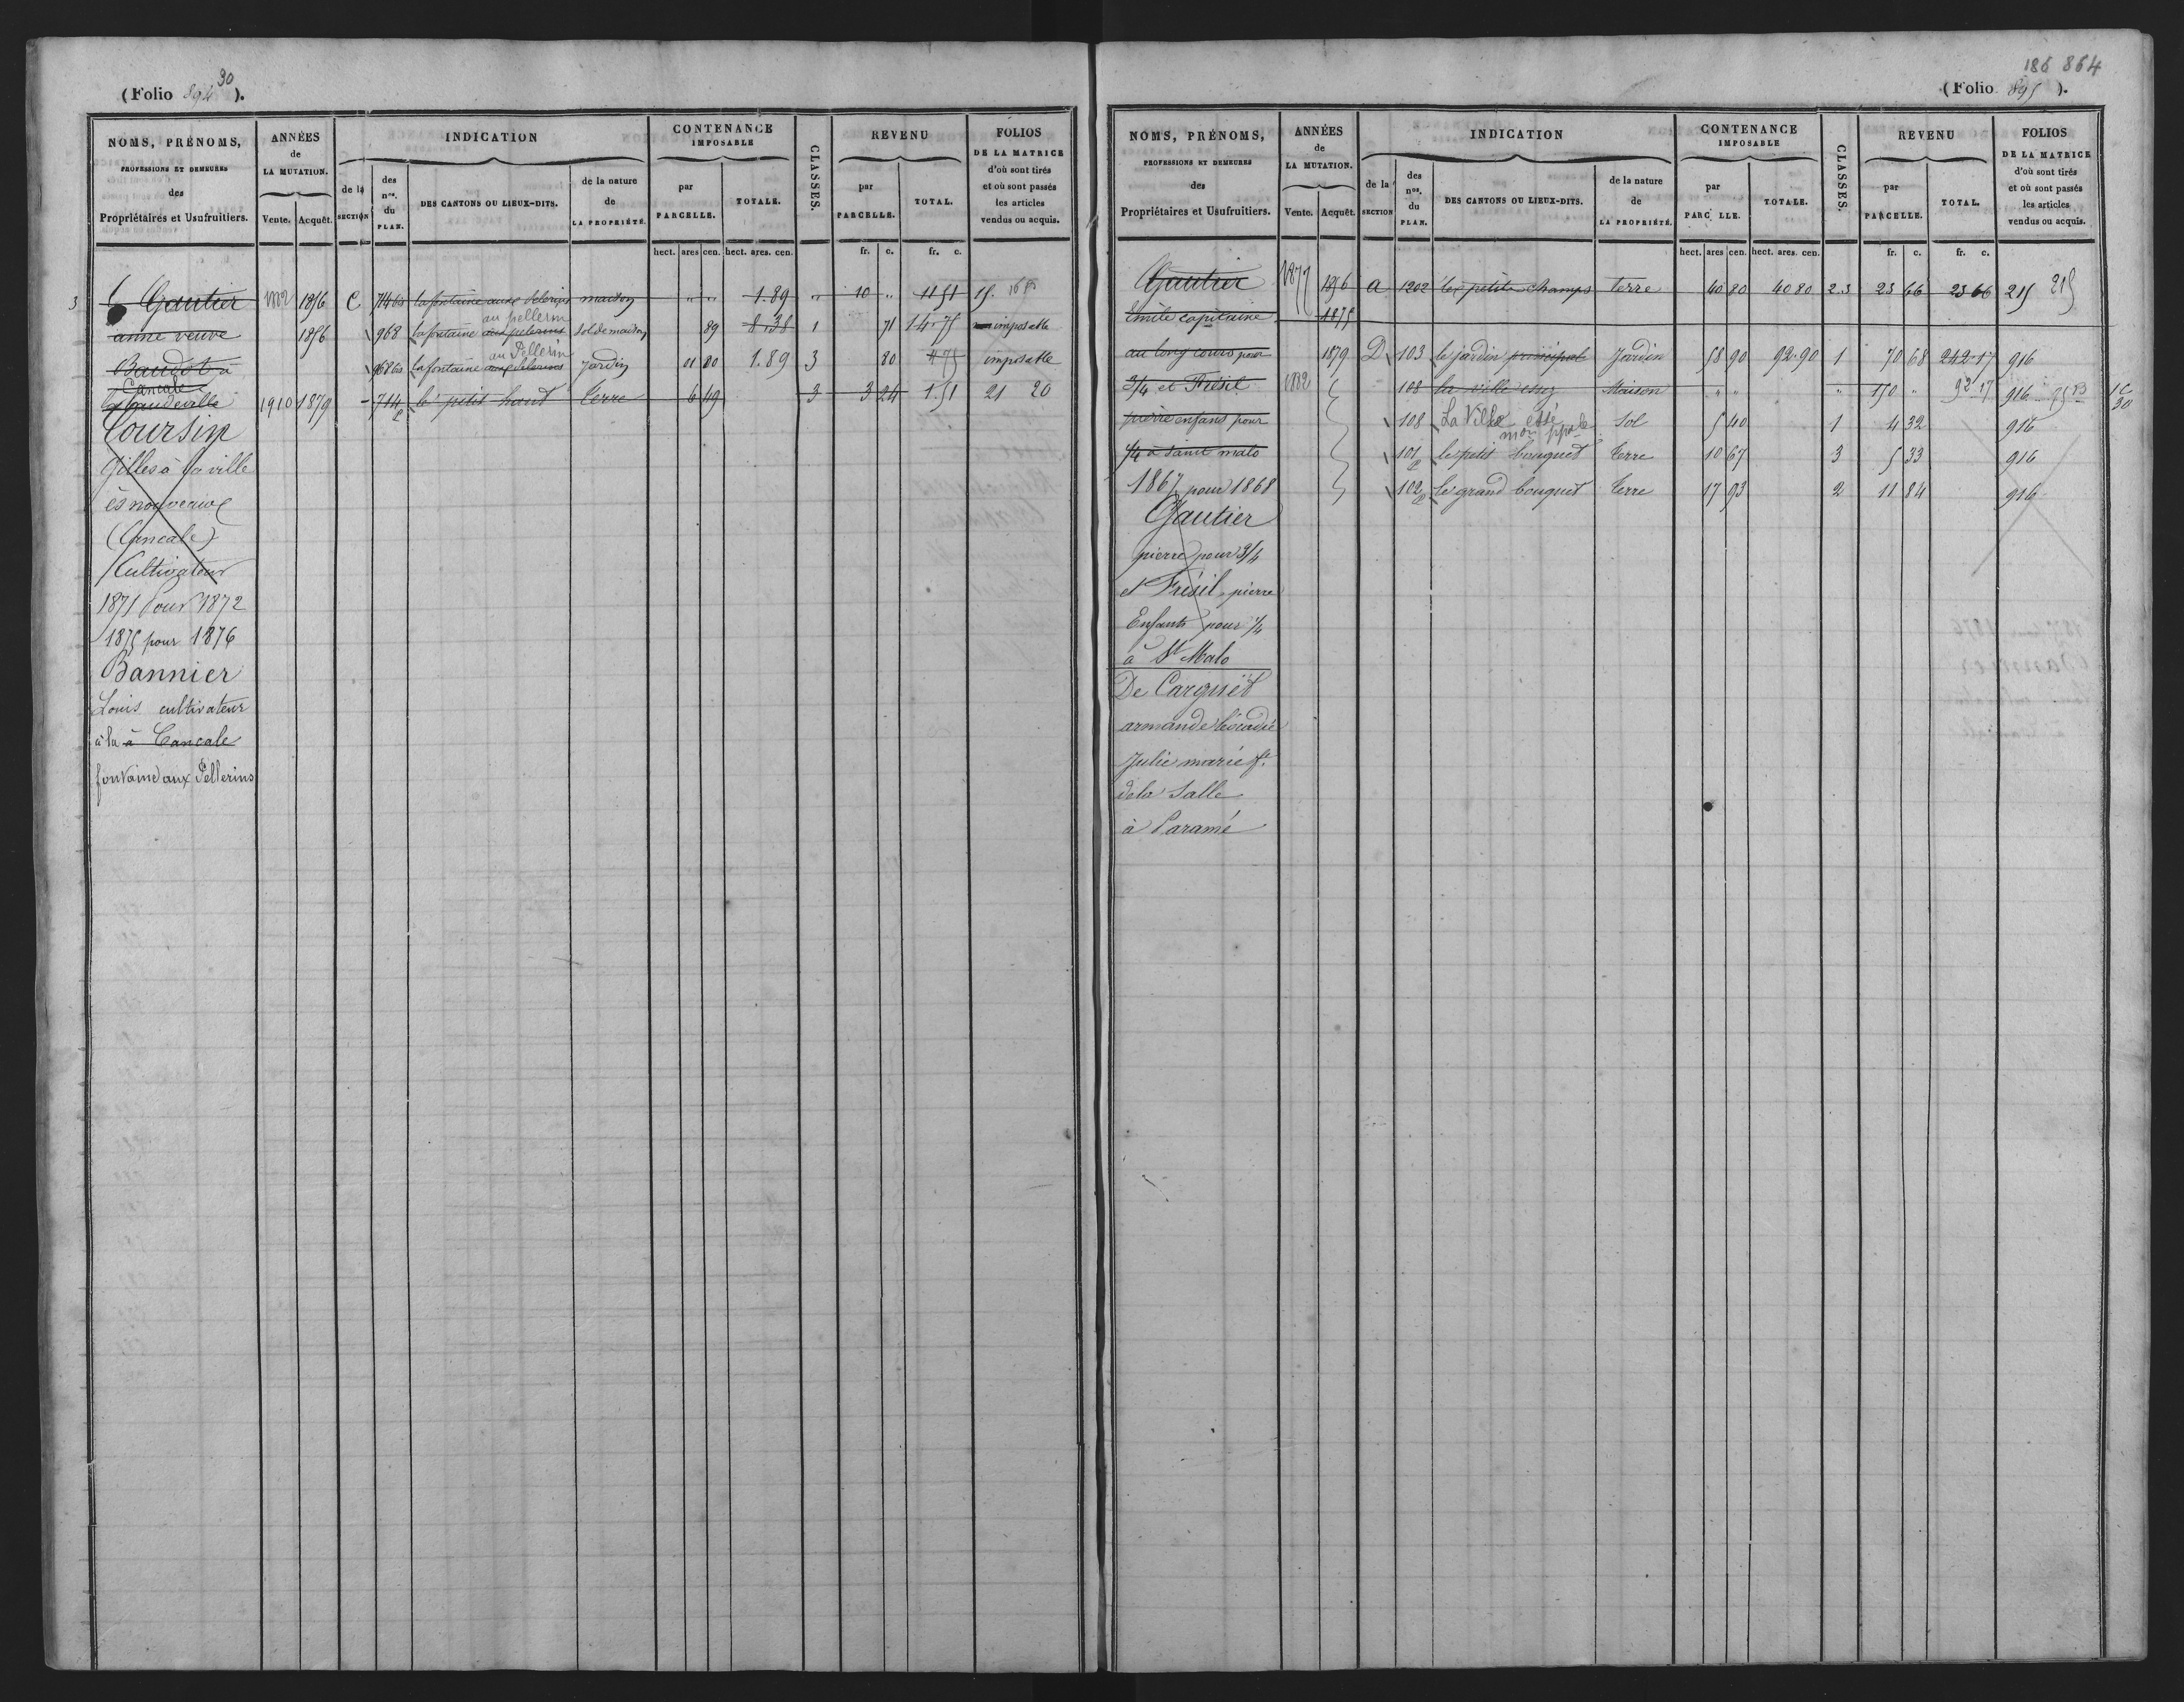 30
(Folio 894 ).
NOMS, PRÉNOMS,
PROFESSIONS ET DEMEURES
des
Propriétaires et Usufruitiers.
ANNÉES
de
LA MUTATION.
Vente. Acquêt.
INDICATION
de la
SECTION
des
nos.
du
PLAN.
DES CANTONS OU LIEUX-DITS.
de la nature
de
LA PROPRIÉTÉ.
CONTENANCE
IMPOSABLE
par
PARCELLE.
TOTALE.
CLASSES.
REVENU
par
PARCELLE.
TOTAL.
FOLIOS
DE LA MATRICE
d'où sont tirés
et où sont passés
les articles
vendus ou acquis.
hect. ares cen. hect. ares. cen. fr. c. fr. c.
3 Gautier 1882 1856 C 714bis la fontaine aux pelerins maison " " 1.89 " 10 " 11 51 15
au pellerin
anne veuve 1856 968 la fontaine aux pelerins sol de maison 89 8.38 1 71 14.75 imposable
au Pellerin
Baudot à 968bis la fontaine aux pelerins Jardin 01 00 1.89 3 80 4 75 imposable
Cancale
1910 1879 714 le petit hout terre 6 49 3 3 24 1.51 21 20
p
Coursin
Gilles à la ville
ès nouveaux
(Cancale)
Cultivateur
1871 pour 1872
1875 pour 1876
Bannier
Louis cultivateur
à la à Cancale
fontaine aux Pellerins
186 864
(Folio 895 ).
NOMS, PRÉNOMS,
PROFESSIONS ET DEMEURES
des
Propriétaires et Usufruitiers.
ANNÉES
de
LA MUTATION.
Vente. Acquêt.
INDICATION
de la
SECTION
des
nos.
du
PLAN.
DES CANTONS OU LIEUX-DITS.
de la nature
de
LA PROPRIÉTÉ.
CONTENANCE
IMPOSABLE
par
PARC LLE.
TOTALE.
CLASSES.
REVENU
par
PARCELLE.
TOTAL.
FOLIOS
DE LA MATRICE
d'où sont tirés
et où sont passés
les articles
vendus ou acquis.
hect. ares cen. hect. ares. cen. fr. c. fr. c.
Gautier 1877 1856 A 1202 les petits champs terre 40 80 40 80 2.3 23 66 23 66 215 215
émile capitaine 1875
au long cours pour 1879 D 103 le jardin principal Jardin 58 90 92.90 1 70 68 242.17 916
3/4 et Frésil 1882 108 la ville Maison " " " 150 " 92 17 916
pierre enfans pour 108 La Ville essé Sol 5 40 1 4 32 916
mon pple
1/4 à saint malo 101 le petit bouquet terre 10 67 3 5 33 916
p
1867 pour 1868 102 le grand bouquet terre 17 93 2 11 84 916
p
Gautier
pierre pour 3/4
et Frésil, pierre
Enfants pour 1/4
à St Malo
De Carguët
armande léocadie
Julie marie fe
de la Salle
à Paramé